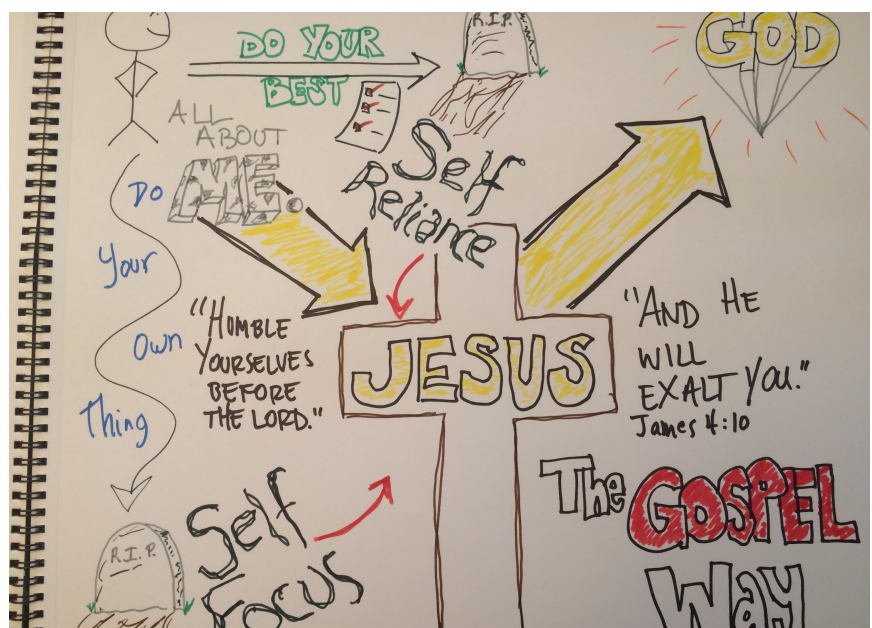 DO YOUR
BEST
R.I.P.
GOD
ALL
ABOUT
ME.
Self
Reliance
Do
Your
Own
Thing
"HUMBLE
YOURSELVES
BEFORE
THE LORD."
JESUS
"AND HE
WILL
EXALT YOU."
James 4:10
R.I.P.
Self
FOCUS
The GOSPEL
Way